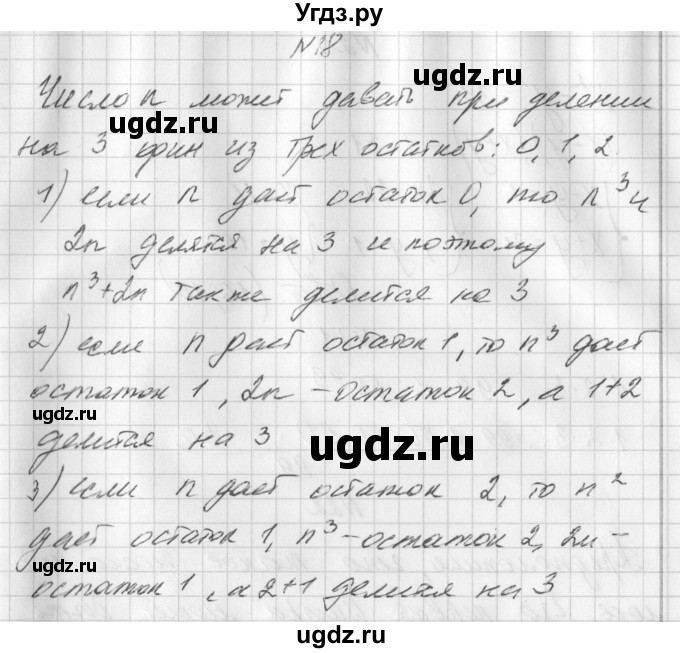 Угдз.ру
N18
Число n может давать при делении
на 3 один из трех остатков: 0, 1, 2.
1) если n дает остаток 0, то n³ и
2n делятся на 3 и поэтому
n³+2n также делится на 3
2) если n дает остаток 1, то n³ дает
остаток 1, 2n - остаток 2, а 1+2
делится на 3
3) если n дает остаток 2, то n²
дает остаток 1, n³ - остаток 2, 2n -
остаток 1, а 2+1 делится на 3
ugdz.ru
ugdz.ru
ugdz.ru
ugdz.ru
ugdz.ru
ugdz.ru
ugdz.ru